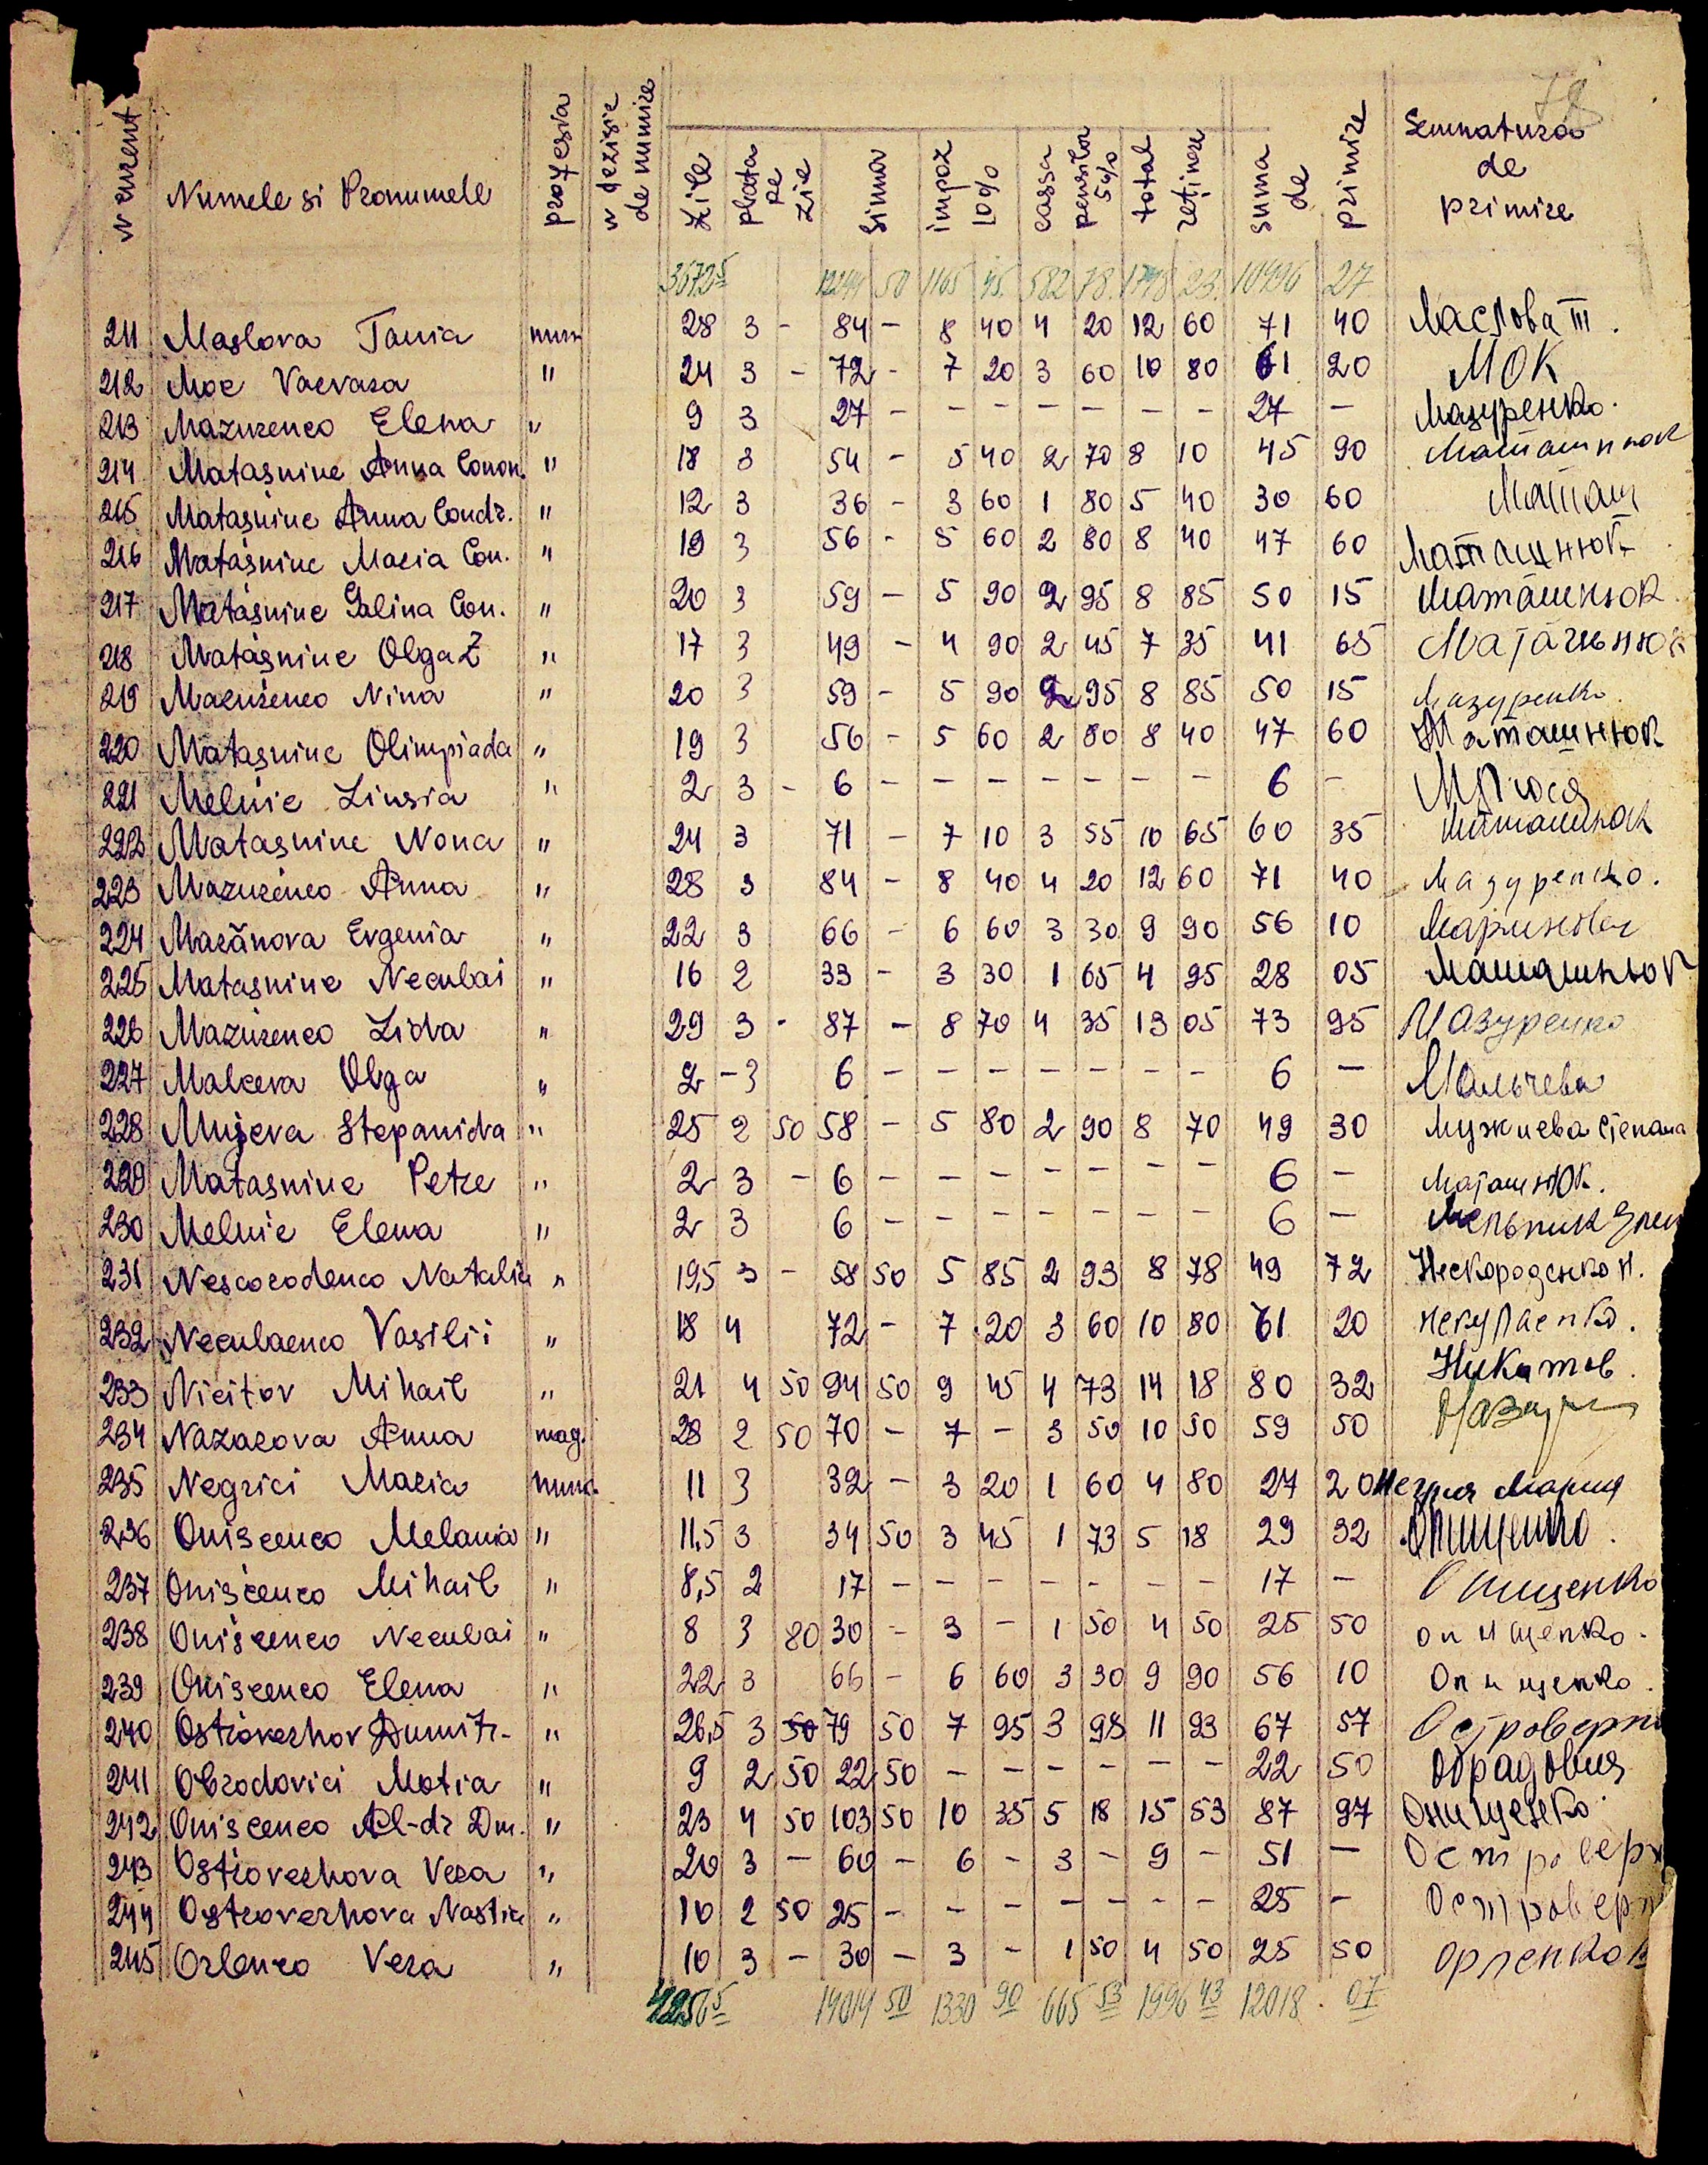 78
N curent Numele si Pronumele profesia N dezisie de numire zile plata pe zie suma impoz 10% cassa pensilor 5% total reținere suma de primire Semnatura de primire
3672 5 50 1165 45 582 78 1748 23 10496 27
211 Maslova Tania munc 28 3 - 84 - 8 40 4 20 12 60 71 40 Маслова Т.
212 Moc Varvara " 24 3 - 72 - 7 20 3 60 10 80 61 20 МОК
213 Mazurenco Elena " 9 3 27 - - - - - - - 27 - Мазуренко.
214 Matașniuc Anna Conon. " 18 3 54 - 5 40 2 70 8 10 45 90 Маташнюк
215 Matașniuc Anna Condr. " 12 3 36 - 3 60 1 80 5 40 30 60 Маташ
216 Matașniuc Maria Con. " 19 3 56 - 5 60 2 80 8 40 47 60 Маташнюк
217 Matașniuc Galina Con. " 20 3 59 - 5 90 2 95 8 85 50 15 Маташнюк
218 Matașniuc Olga Z " 17 3 49 - 4 90 2 45 7 35 41 65 Маташнюк
219 Mazurenco Nina " 20 3 59 - 5 90 2 95 8 85 50 15 Мазуренко
220 Matașniuc Olimpiada " 19 3 56 - 5 60 2 80 8 40 47 60 Маташнюк
221 Melnic Liusia " 2 3 - 6 - - - - - - - 6 -
222 Matașniuc Nona " 24 3 71 - 7 10 3 55 10 65 60 35 Маташнюк
223 Mazurenco Anna " 28 3 84 - 8 40 4 20 12 60 71 40 Мазуренко.
224 Marănova Evgenia " 22 3 66 - 6 60 3 30 9 90 56 10
225 Matașniuc Neculai " 16 2 33 - 3 30 1 65 4 95 28 05 Маташнюк
226 Mazurenco Lida " 29 3 - 87 - 8 70 4 35 13 05 73 95 Мазуренко
227 Malceva Olga " 2 - 3 6 - - - - - - - 6 - Мальчева
228 Mujeva Stepanida " 25 2 50 58 - 5 80 2 90 8 70 49 30 Мужиева Степана
229 Matașniuc Petre " 2 3 - 6 - - - - - - - 6 - Маташнюк.
230 Melnic Elena " 2 3 6 - - - - - - - 6 - Мельник Элен
231 Nescorodenco Natalia " 19,5 3 - 58 50 5 85 2 93 8 78 49 72 Нескороденко Н.
232 Neculaenco Vasilii " 18 4 72 - 7 20 3 60 10 80 61 20 Некулаенко.
233 Nicitov Mihail " 21 4 50 94 50 9 45 4 73 14 18 80 32 Никитов.
234 Nazarova Anna mag. 28 2 50 70 - 7 - 3 50 10 50 59 50
235 Negrici Maria munc. 11 3 32 - 3 20 1 60 4 80 27 20 Негрич Мария
236 Onișcenco Melania " 11,5 3 34 50 3 45 1 73 5 18 29 32 Онищенко.
237 Onișcenco Mihail " 8,5 2 17 - - - - - - - 17 - Онищенко
238 Onișcenco Neculai " 8 3 80 30 - 3 - 1 50 4 50 25 50 Онищенко.
239 Onișcenco Elena " 22 3 66 - 6 60 3 30 9 90 56 10 Онищенко.
240 Ostroverhov Dumitr. " 26,5 3 50 79 50 7 95 3 98 11 93 67 57 Островерхо
241 Obrodovici Motia " 9 2 50 22 50 - - - - - - 22 50 Обрадовия
242 Onișcenco Al-dr Dm. " 23 4 50 103 50 10 35 5 18 15 53 87 97 Онищенко.
243 Ostroverhova Vera " 20 3 - 60 - 6 - 3 - 9 - 51 - Островерх
244 Ostroverhova Nastia " 10 2 50 25 - - - - - - - 25 - Островерх
245 Orlenco Vera " 10 3 - 30 - 3 - 1 50 4 50 25 50 Орленко В
4256 5 14014 50 1330 90 665 53 1996 43 12018. 07